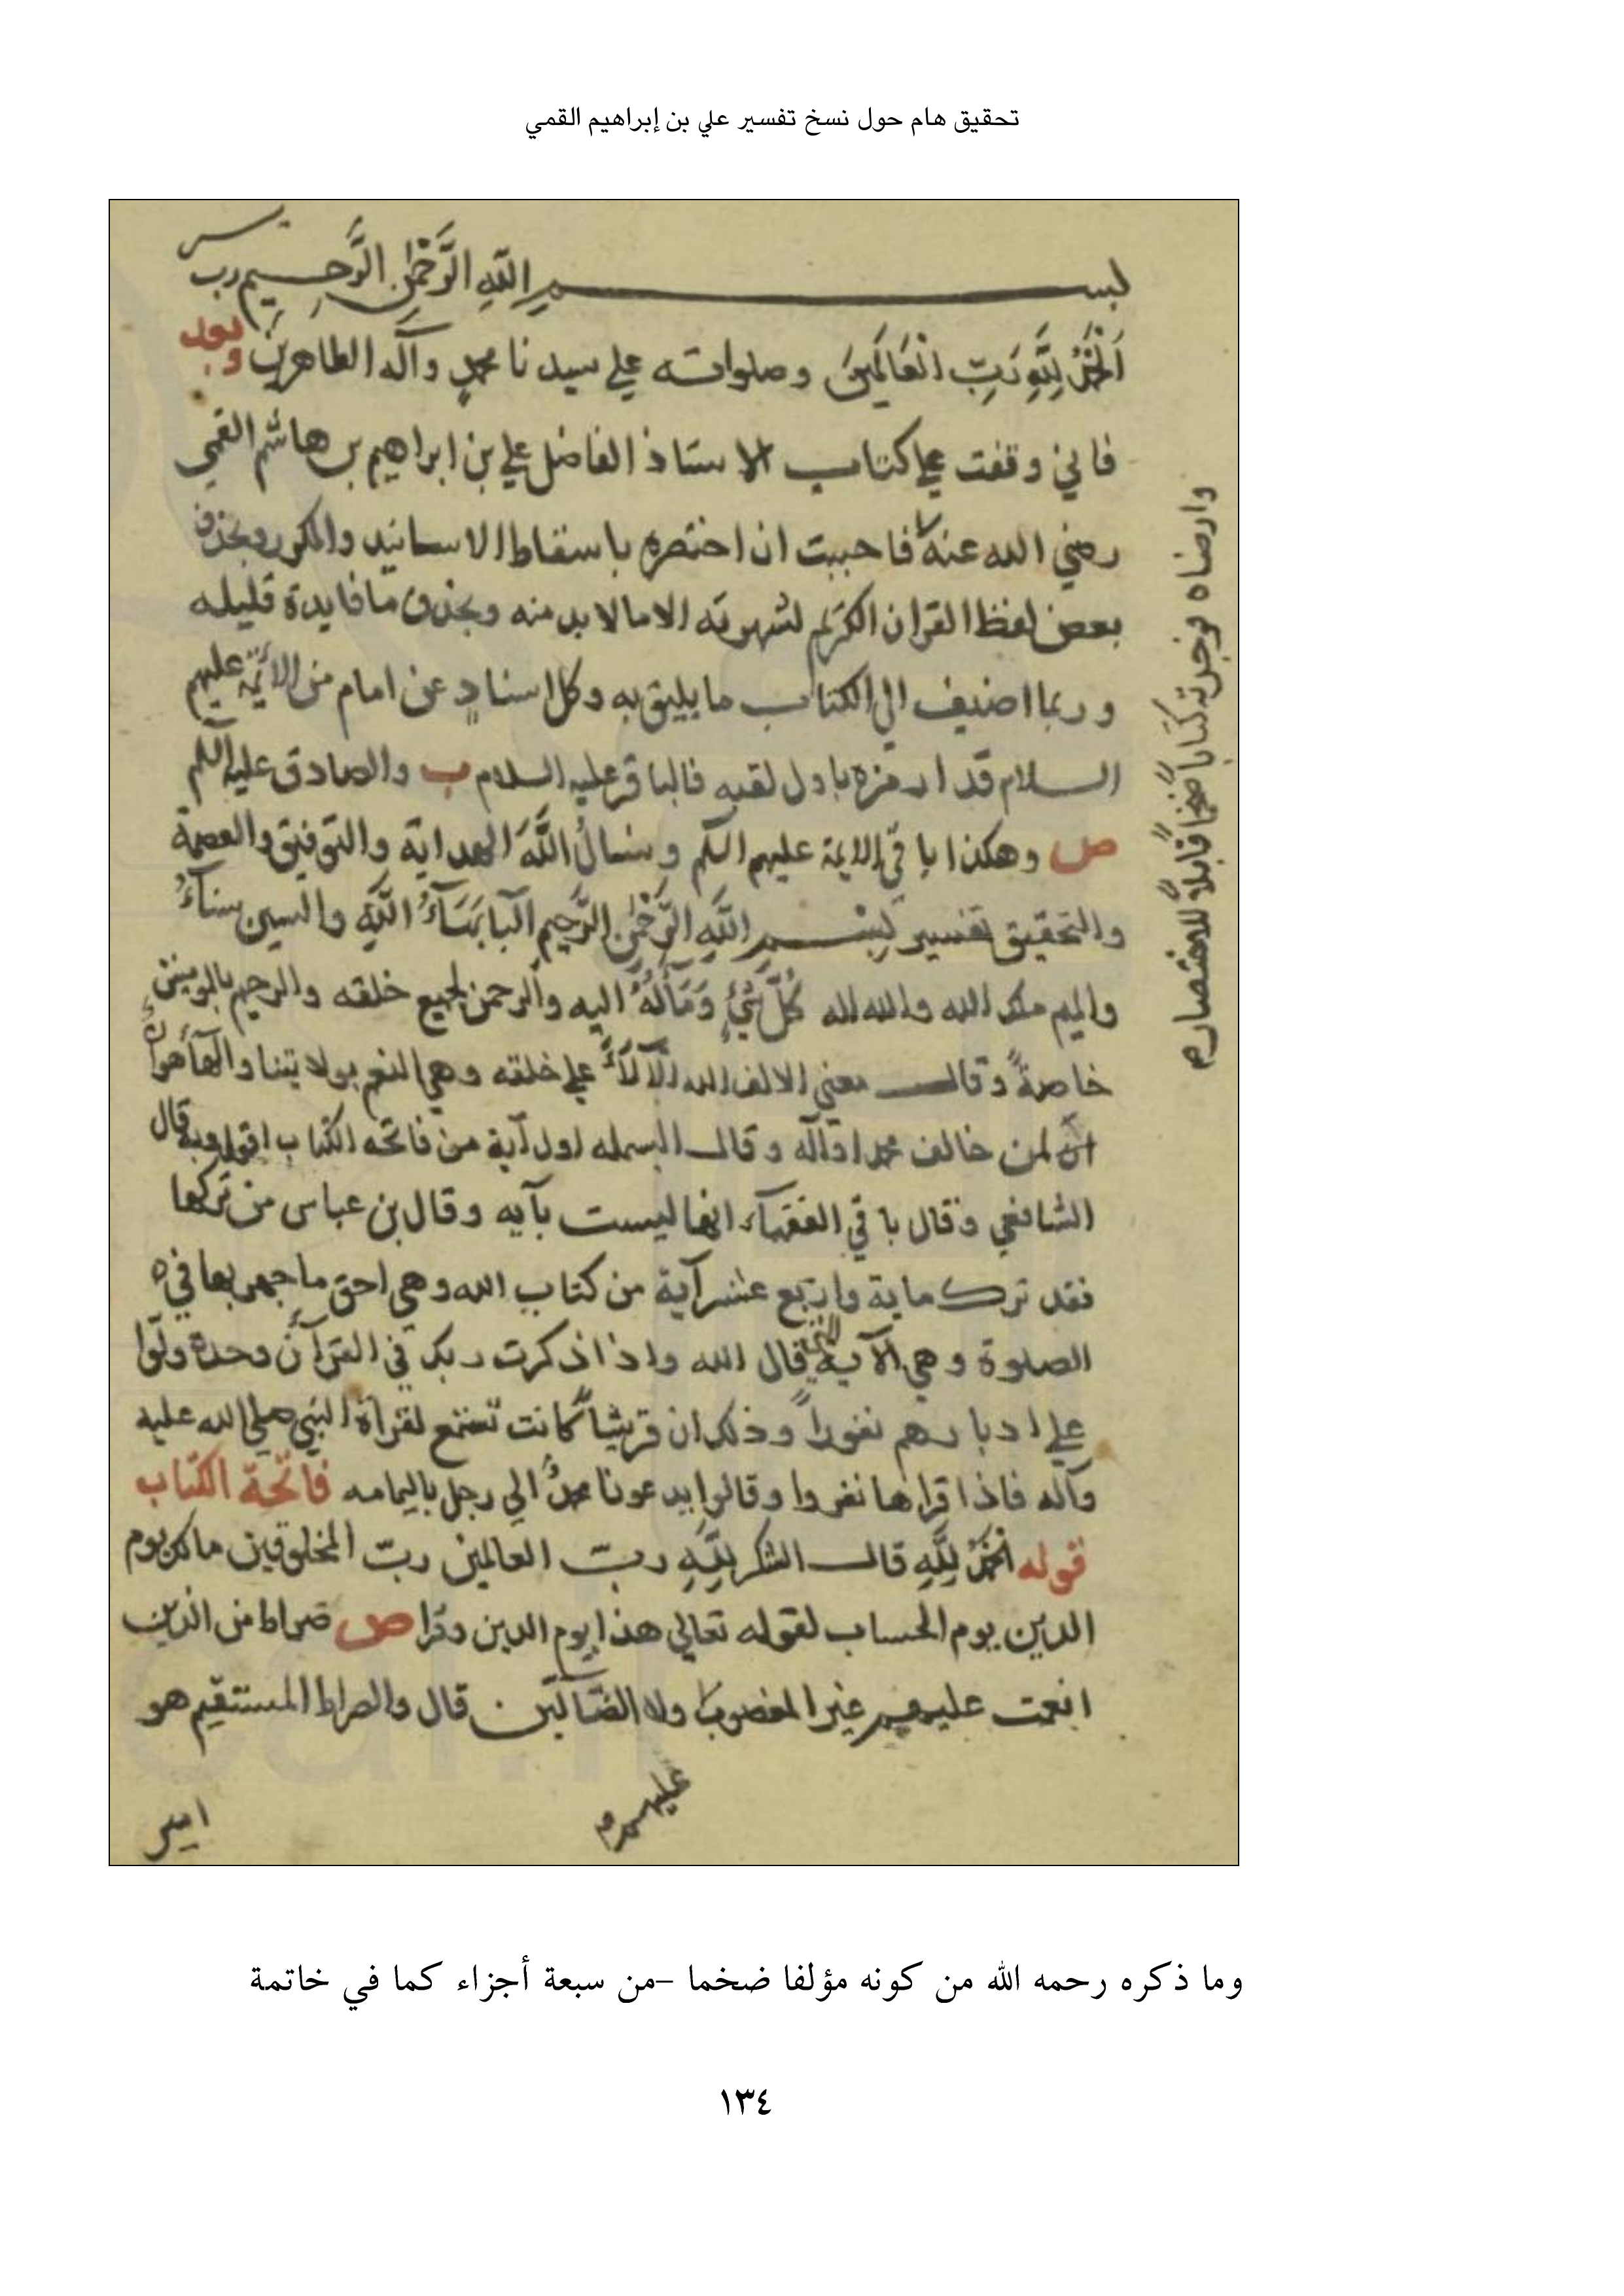 تحقيق هام حول نسخ تفسير علي بن إبراهيم القمي
بسم اللهِ الرَّحْمٰنِ الرَّحِيمِ رب يسر
اَلْحَمْدُ لِلَّهِ رَبِّ الْعَالَمِينَ وصلواته علي سيدنا محمدٍ وآله الطاهرين وبعد
فاني وقفت علي كتاب الاستاذ الفاضل علي بن ابراهيم بن هاشم القمي
رضي الله عنه فاحببت ان اختصره باسقاط الاسانيد والمكرر وبحذف
بعض لفظ القران الكريم لشهرته الا ما لابد منه وبحذف ما فايدة قليله
وربما اضيف الي الكتاب ما يليق به وكل اسنادٍ عن امام من الائمة عليهم
السلام قد ارمزه باول لقبه فالباقر عليه السلام ب والصادق عليه السلم
ص وهكذا باقي الايمة عليهم السلم ونسالُ اللَّهَ الهداية والتوفيق والعصمة
والتحقيق تفسير بِسْمِ اللَّهِ الرَّحْمٰنِ الرَّحِيمِ البا بَهَاءُ اللَّهِ والسين سناءُ
والميم ملك الله والله اله كُلِّ شَيْءٍ والرحمن لجميع خلقه والرحيم بالمومنين
خاصةً وقال معني الالف الله علي خلقه وهي النعم بولايتنا والهآ هوانٌ
لمن خالف محمدا وآله وقال البسمله اول آية من فاتحه الكتاب اقول وبه قال
الشافعي وقال باقي الفقهآء انها ليست بآيه وقال بن عباس من تركها
فقد ترك ماية واربع عشر آية من كتاب الله وهي احق ما جهر بها في
الصلوة وهي الآية التي قال الله واذا ذكرت ربك في القرآن وحده ولّوا
علي ادبارهم نفوراً وذلك ان قريشاً كانت تستمع لقراة النبي صلي الله عليه
وآله فاذا قراها نفروا وقالوا يدعونا محمدٌ الي رجل باليمامه فاتحة الكتاب
قوله الحمدُ لِلَّهِ قال الشكر لِلَّهِ ربّ العالمين ربّ المخلوقين مالك يوم
الدين يوم الحساب لقوله تعالي هذا يوم الدين وقرا ص صراط من الذين
انعمت عليهم غير المغضوب ولا الضآلّين قال والصراط المستقيم هو
عليهم
امير
وما ذكره رحمه الله من كونه مؤلفا ضخما –من سبعة أجزاء كما في خاتمة
١٣٤